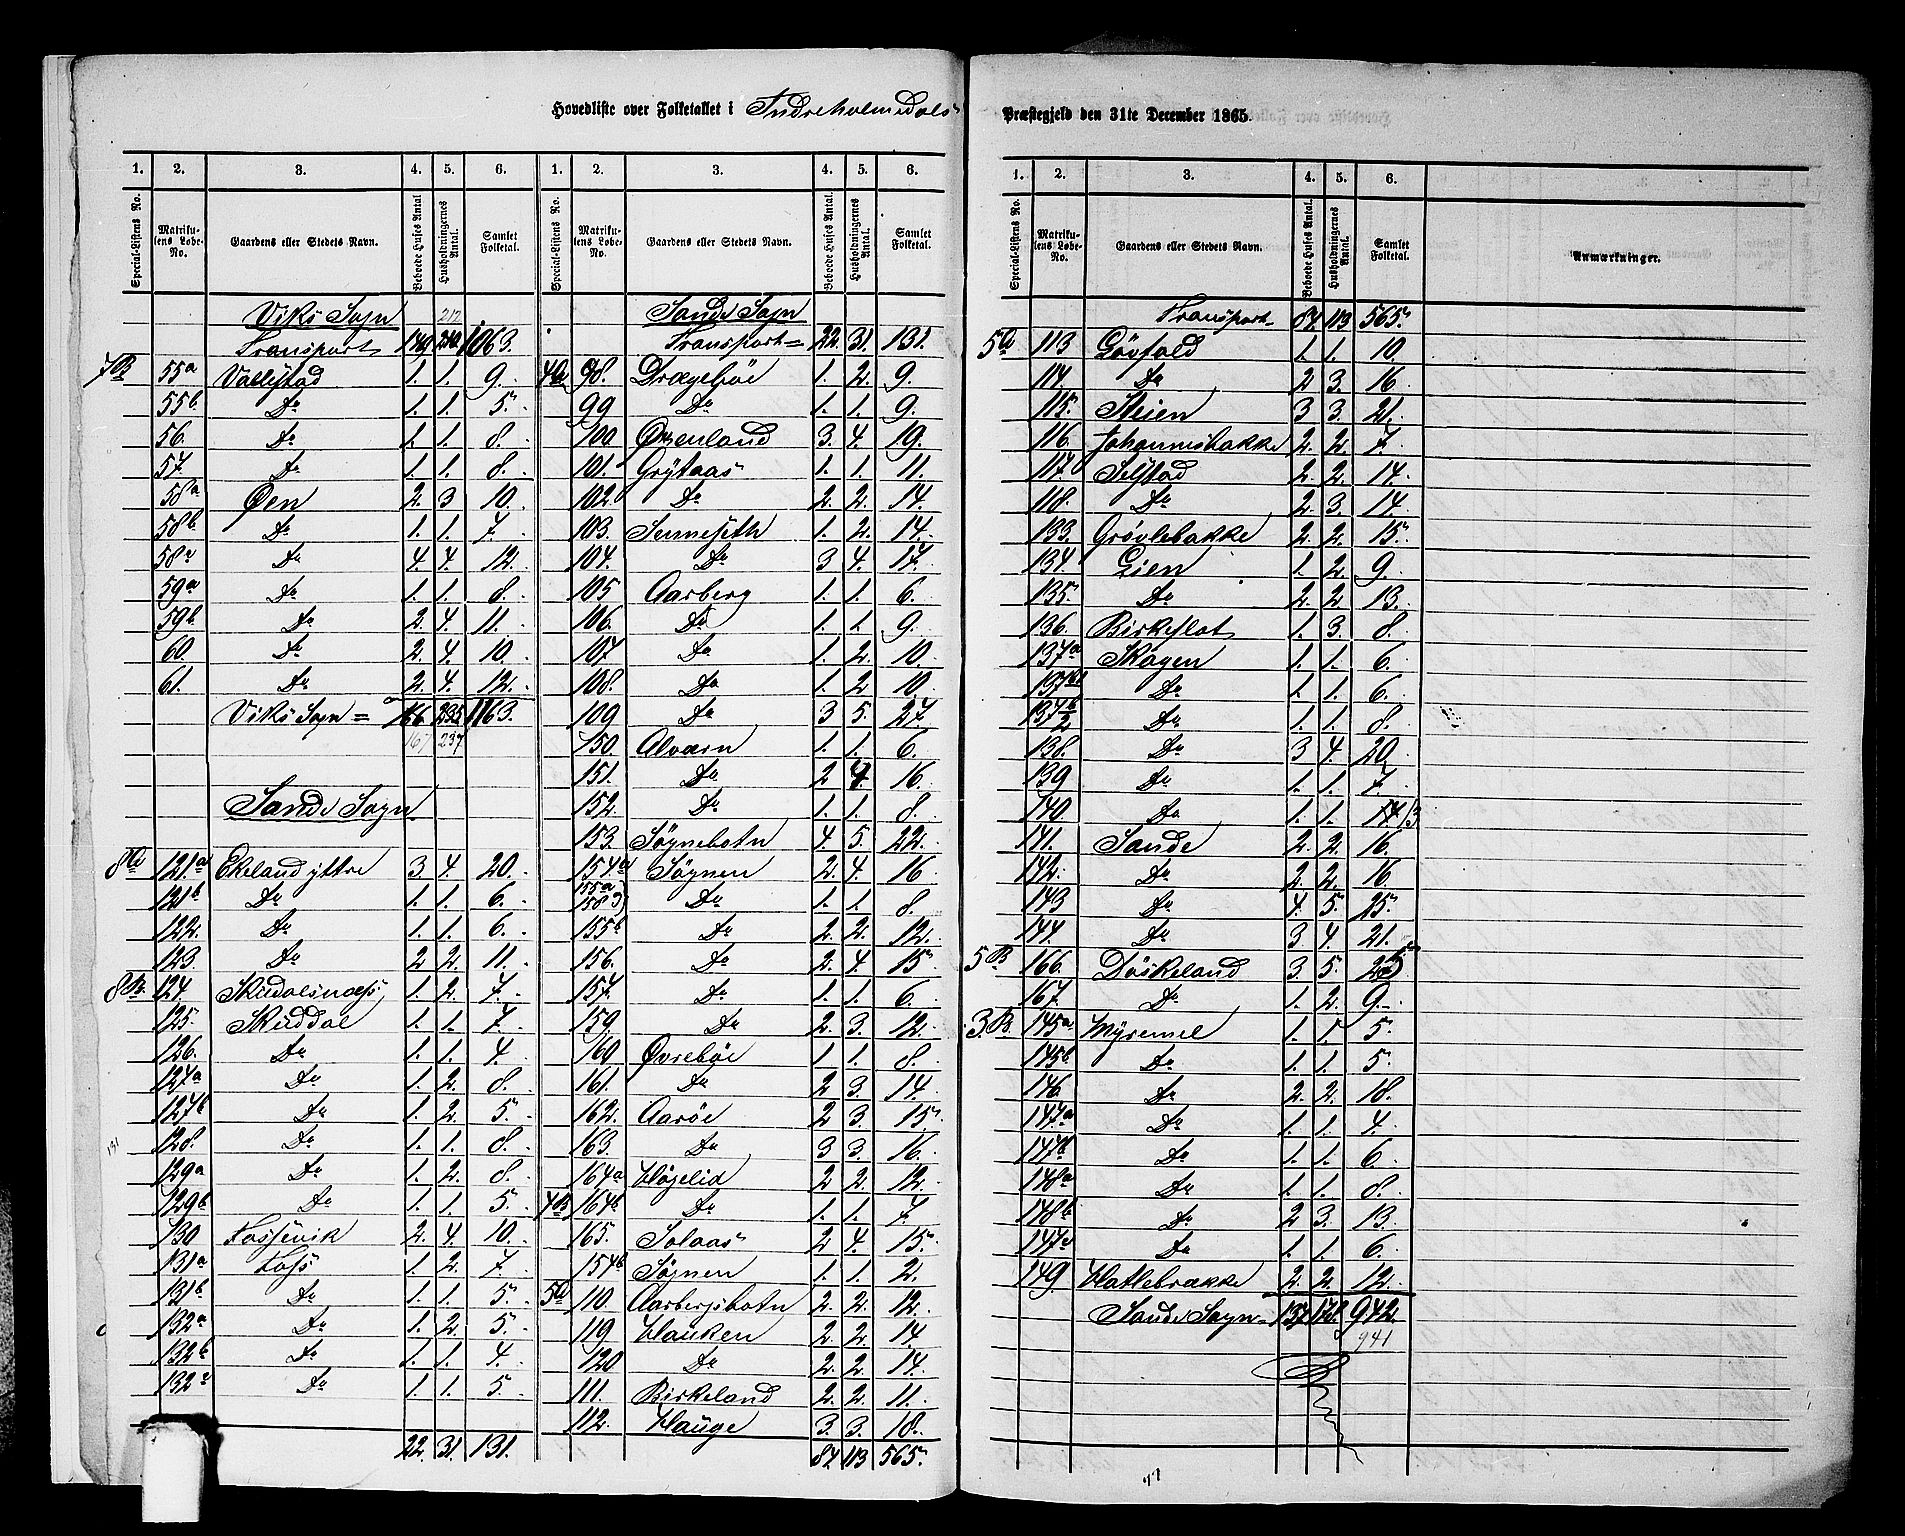 Hovedliste over Folketallet i Indreholmedals
Præstegjeld den 31te December 1865.
1. 2. 3. 4. 5. 6. 1. 2. 3. 4. 5. 6.
Special-Listens No. Matrikulens Lobe-No. Gaardens eller Stedets Navn. Beboede Huses Antal. Husholdningernes Antal. Samlet Folketal. Special-Listens No. Matrikulens Lobe-No. Gaardens eller Stedets Navn. Beboede Huses Antal. Husholdningernes Antal. Samlet Folketal.
Viks Sogn 212
Transport 149 210 1063.
7B 55a Vallestad 1. 1. 9.
55b. Do 1. 1. 5.
56. Do 1. 1. 8.
57. Do 1. 1. 8.
58a Øen 2. 3 10.
58b Do 1. 1. 7.
58c Do 4. 4. 12.
59a Do 1. 1. 8.
59b Do 2. 4. 11.
60. Do 2. 4. 10.
61. Do 2. 4. 12.
Viks Sogn = 166 235 1163.
167 237
Sande Sogn.
8a 121a Ekeland yttre 3. 4. 20.
121b Do 1. 1. 6.
122. Do 1. 1. 6.
123. Do 2 2. 11.
8B 124. Skudalsnæss 1. 2. 7.
125. Skuddal 1. 1. 7.
126. Do 1. 1. 4.
127a Do 1. 2. 8.
127b Do 1. 2. 5.
131
128. Do 1. 1. 8.
129a Do 1. 2. 8.
129b Do 1. 1. 5.
130 Fossevik 2. 4. 10.
131a Foss 1. 2. 7.
131b Do 1. 1. 5.
132a Do 1. 2. 5.
132b Do 1. 1. 4.
132c Do 1. 1. 5.
22. 31. 131.
Sande Sogn
Transport = 22. 31. 131.
4a 98. Drægebøe 1. 2. 9.
99 Do 1. 1. 9.
100 Øxenland 3. 4. 19.
101. Grytaas 1. 1. 11.
102. Do 2. 2. 14.
103. Senneseth 1. 2. 14.
104. Do 3 4. 17.
105 Aarberg 1. 1. 6.
106. Do 1. 1 9.
107. Do 1. 2. 10.
108. Do 1. 2 10.
109 Do 3 5. 27.
150. Alværn 1. 1. 6.
151. Do 2 4. 16.
152. Do 1. 1. 8.
153. Søgnebotn 4. 5. 22.
154a Søgnen 2. 4. 16
155a 158 Do 1. 1. 8.
155b Do 2. 2. 12.
156. Do 2. 4. 15
157. Do 1. 1. 6.
159. Do 2. 3. 12.
160 Øvrebøe 1. 1. 8.
161. Do 2 3. 14.
162. Aarøe 2 3. 15.
163. Do 3 3. 16.
164a Høgelid 2 2. 12.
4B 164b Do 1. 1. 7.
165. Solaas 2 4. 15.
154b Søgnen 1. 1. 2.
5a 110. Aarbergsbotn 2. 2. 12.
119 Hauken 2 2. 14.
120 Do 2. 2. 14.
111. Birkeland 2. 2. 11.
112. Hauge 3. 3. 18.
84. 113 565.
1. 2. 3. 4. 5. 6.
Special-Listens No. Matrikulens Lobe-No. Gaardens eller Stedets Navn. Beboede Huses Antal. Husholdningernes Antal. Samlet Folketal. Anmærkninger.
Transport 84. 113 565.
5a 113 Gövfald 1. 1. 10.
114. Do 2 3. 16
115. Steien 3 3. 21.
116. Johannesbakke 2. 2. 7.
117. Selstad 2. 2. 14.
118. Do 2. 3. 14.
133. Grövlebakke 2. 2. 15.
134. Lien 1. 2. 9.
135. Do 2. 2. 13.
136. Birkeflot 1. 3. 8.
137a Skogen 1. 1. 6.
137b1 Do 1. 1. 6.
137b2 Do 1. 1. 8.
138. Do 3 4. 20
139 Do 1. 1. 7.
140 Do 1. 1. 14 13
141. Sande 2. 2. 16.
142. Do 2. 2. 16
143 Do 4. 5. 25.
144. Do 3 4. 21.
5B 166. Döskeland 3. 5. 25
167. Do 1. 2. 9.
3B. 145a Myremel 1. 1. 5.
145b Do 1. 1. 5.
146 Do 2. 2. 18.
147a Do 1. 1. 4.
147b Do 1. 1. 6.
148a Do 1. 1. 8.
148b Do 2 3. 13.
147c Do 1. 1. 6.
149. Hatlebrække 2. 2. 12.
Sande Sogn = 137 178 942.
941